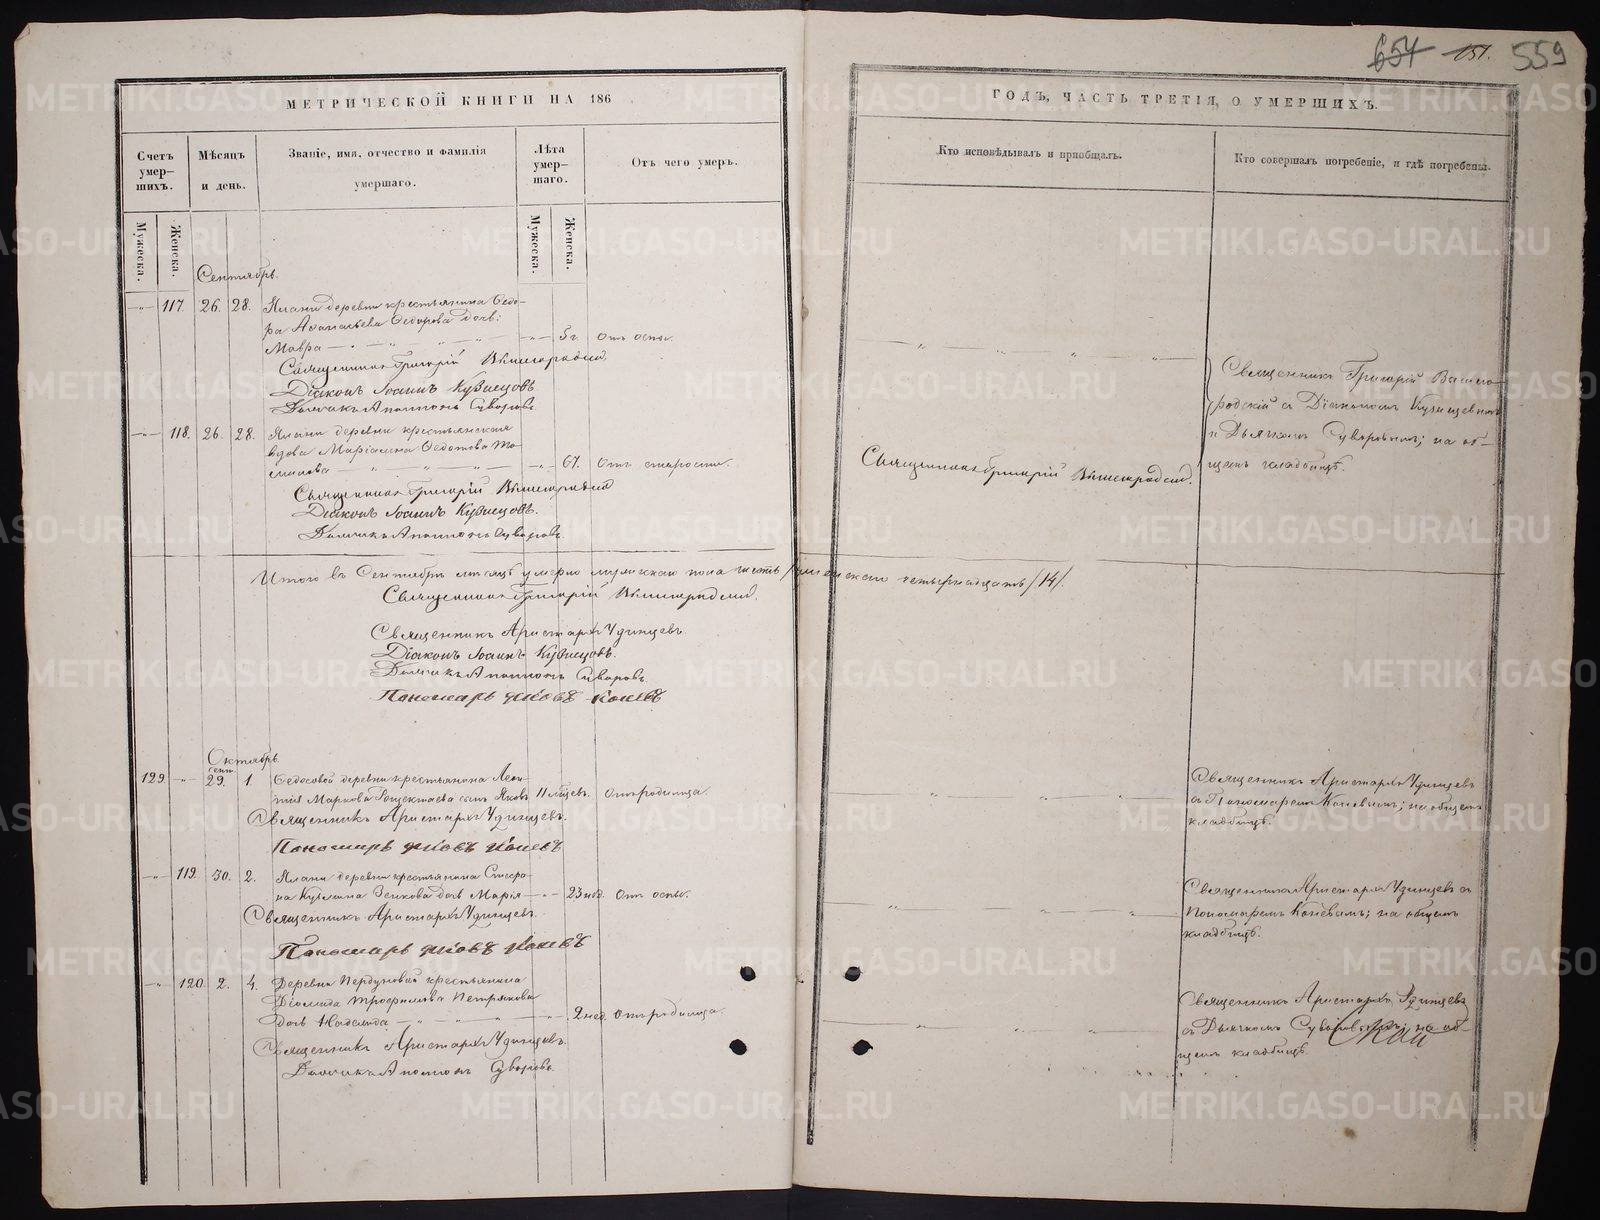 654 151. 559
МЕТРИЧЕСКОЙ КНИГИ НА 186
ГОДЪ, ЧАСТЬ ТРЕТІЯ, О УМЕРШИХЪ.
Счетъ умер-шихъ.
Мѣсяцъ и день.
Званіе, имя, отчество и фамилія умершаго.
Лѣта умер-шаго.
Отъ чего умеръ.
Кто исповѣдывалъ и пріобщалъ.
Кто совершалъ погребеніе, и гдѣ погребены.
Мужеска.
Женска.
Мужеска.
Женска.
Сентябрь.
117. 26. 28. деревни крестьянина Ѳедо-
ра Аѳанасьева Ѳедорова дочь:
Мавра 5 г. Отъ оспы.
Священникъ Григорій Вышегродскій
Діаконъ Іоаннъ Кузнецовъ
Дьячикъ Аполлонъ Суворовъ
Священникъ Григорій
родскій съ Діакономъ Кузнецовымъ
и Дьячкомъ Суворовымъ; на об-
щемъ кладбищѣ.
118. 26. 28. деревни крестьянская
вдова Маріамна Ѳедотова
67. Отъ старости.
Священникъ Григорій Вышегродскій.
Священникъ Григорій Вышегродскій
Діаконъ Іоаннъ Кузнецовъ.
Дьячикъ Аполлонъ Суворовъ.
Итого въ Сентябрѣ мѣсяцѣ умерло мужскаго пола шесть женскаго четырнадцать /14/.
Священникъ Григорій Вышегродскій.
Священникъ Аристархъ Удинцевъ.
Діаконъ Іоаннъ Кузнецовъ.
Дьячикъ Аполлонъ Суворовъ.
Пономарь Яковъ Коневъ
Октябрь.
сент.
129. 29. 1. Ѳедосовой деревни крестьянина Леон-
тія Маркова сынъ Яковъ 11 мѣсцев. Отъ родимца.
Священникъ Аристархъ Удинцевъ.
Пономарь Яковъ Коневъ
Священникъ Аристархъ Удинцевъ
съ Пономаремъ Коневымъ; на общемъ
кладбищѣ.
119. 30. 2. деревни крестьянина Спиридо-
на Кузмина Зенкова дочь Марія 23 нед. Отъ оспы.
Священникъ Аристархъ Удинцевъ.
Пономарь Яковъ Коневъ
Священникъ Аристархъ Удинцевъ съ
Пономаремъ Коневымъ; на общемъ
кладбищѣ.
120. 2. 4. Деревни крестьянина
Діомида Трофимова Петрякова
дочь Надежда 2 нед. Отъ родимца.
Священникъ Аристархъ Удинцевъ.
Дьячикъ Аполлонъ Суворовъ
Священникъ Аристархъ Удинцевъ
съ Дьячкомъ Суворовымъ; на об-
щемъ кладбищѣ.
METRIKI.GASO-URAL.RU